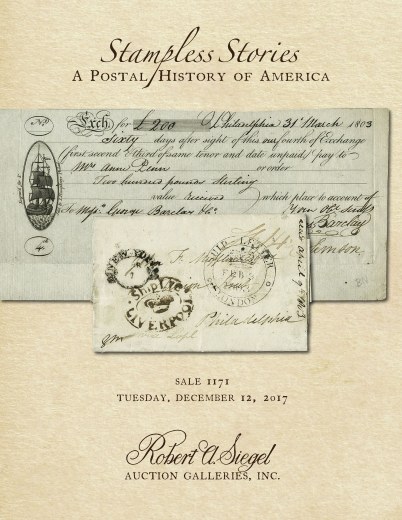 Stampless Stories
A Postal History of America
No
Exch. for £200 Philadelphia 31st March 1803
Sixty days after sight of this our fourth of Exchange
(first second & third of same tenor and date unpaid) pay to
Mrs Ann Penn or order
Two hundred pounds Sterling
value received which place to account of
To Messrs George Barclay & Co.
Barclay
4
NEW YORK
7
SHIP LRE
LIVERPOOL
SHIP LETTER
FEB
LONDON
Philadelphia
SALE 1171
TUESDAY, DECEMBER 12, 2017
Robert A. Siegel
AUCTION GALLERIES, INC.